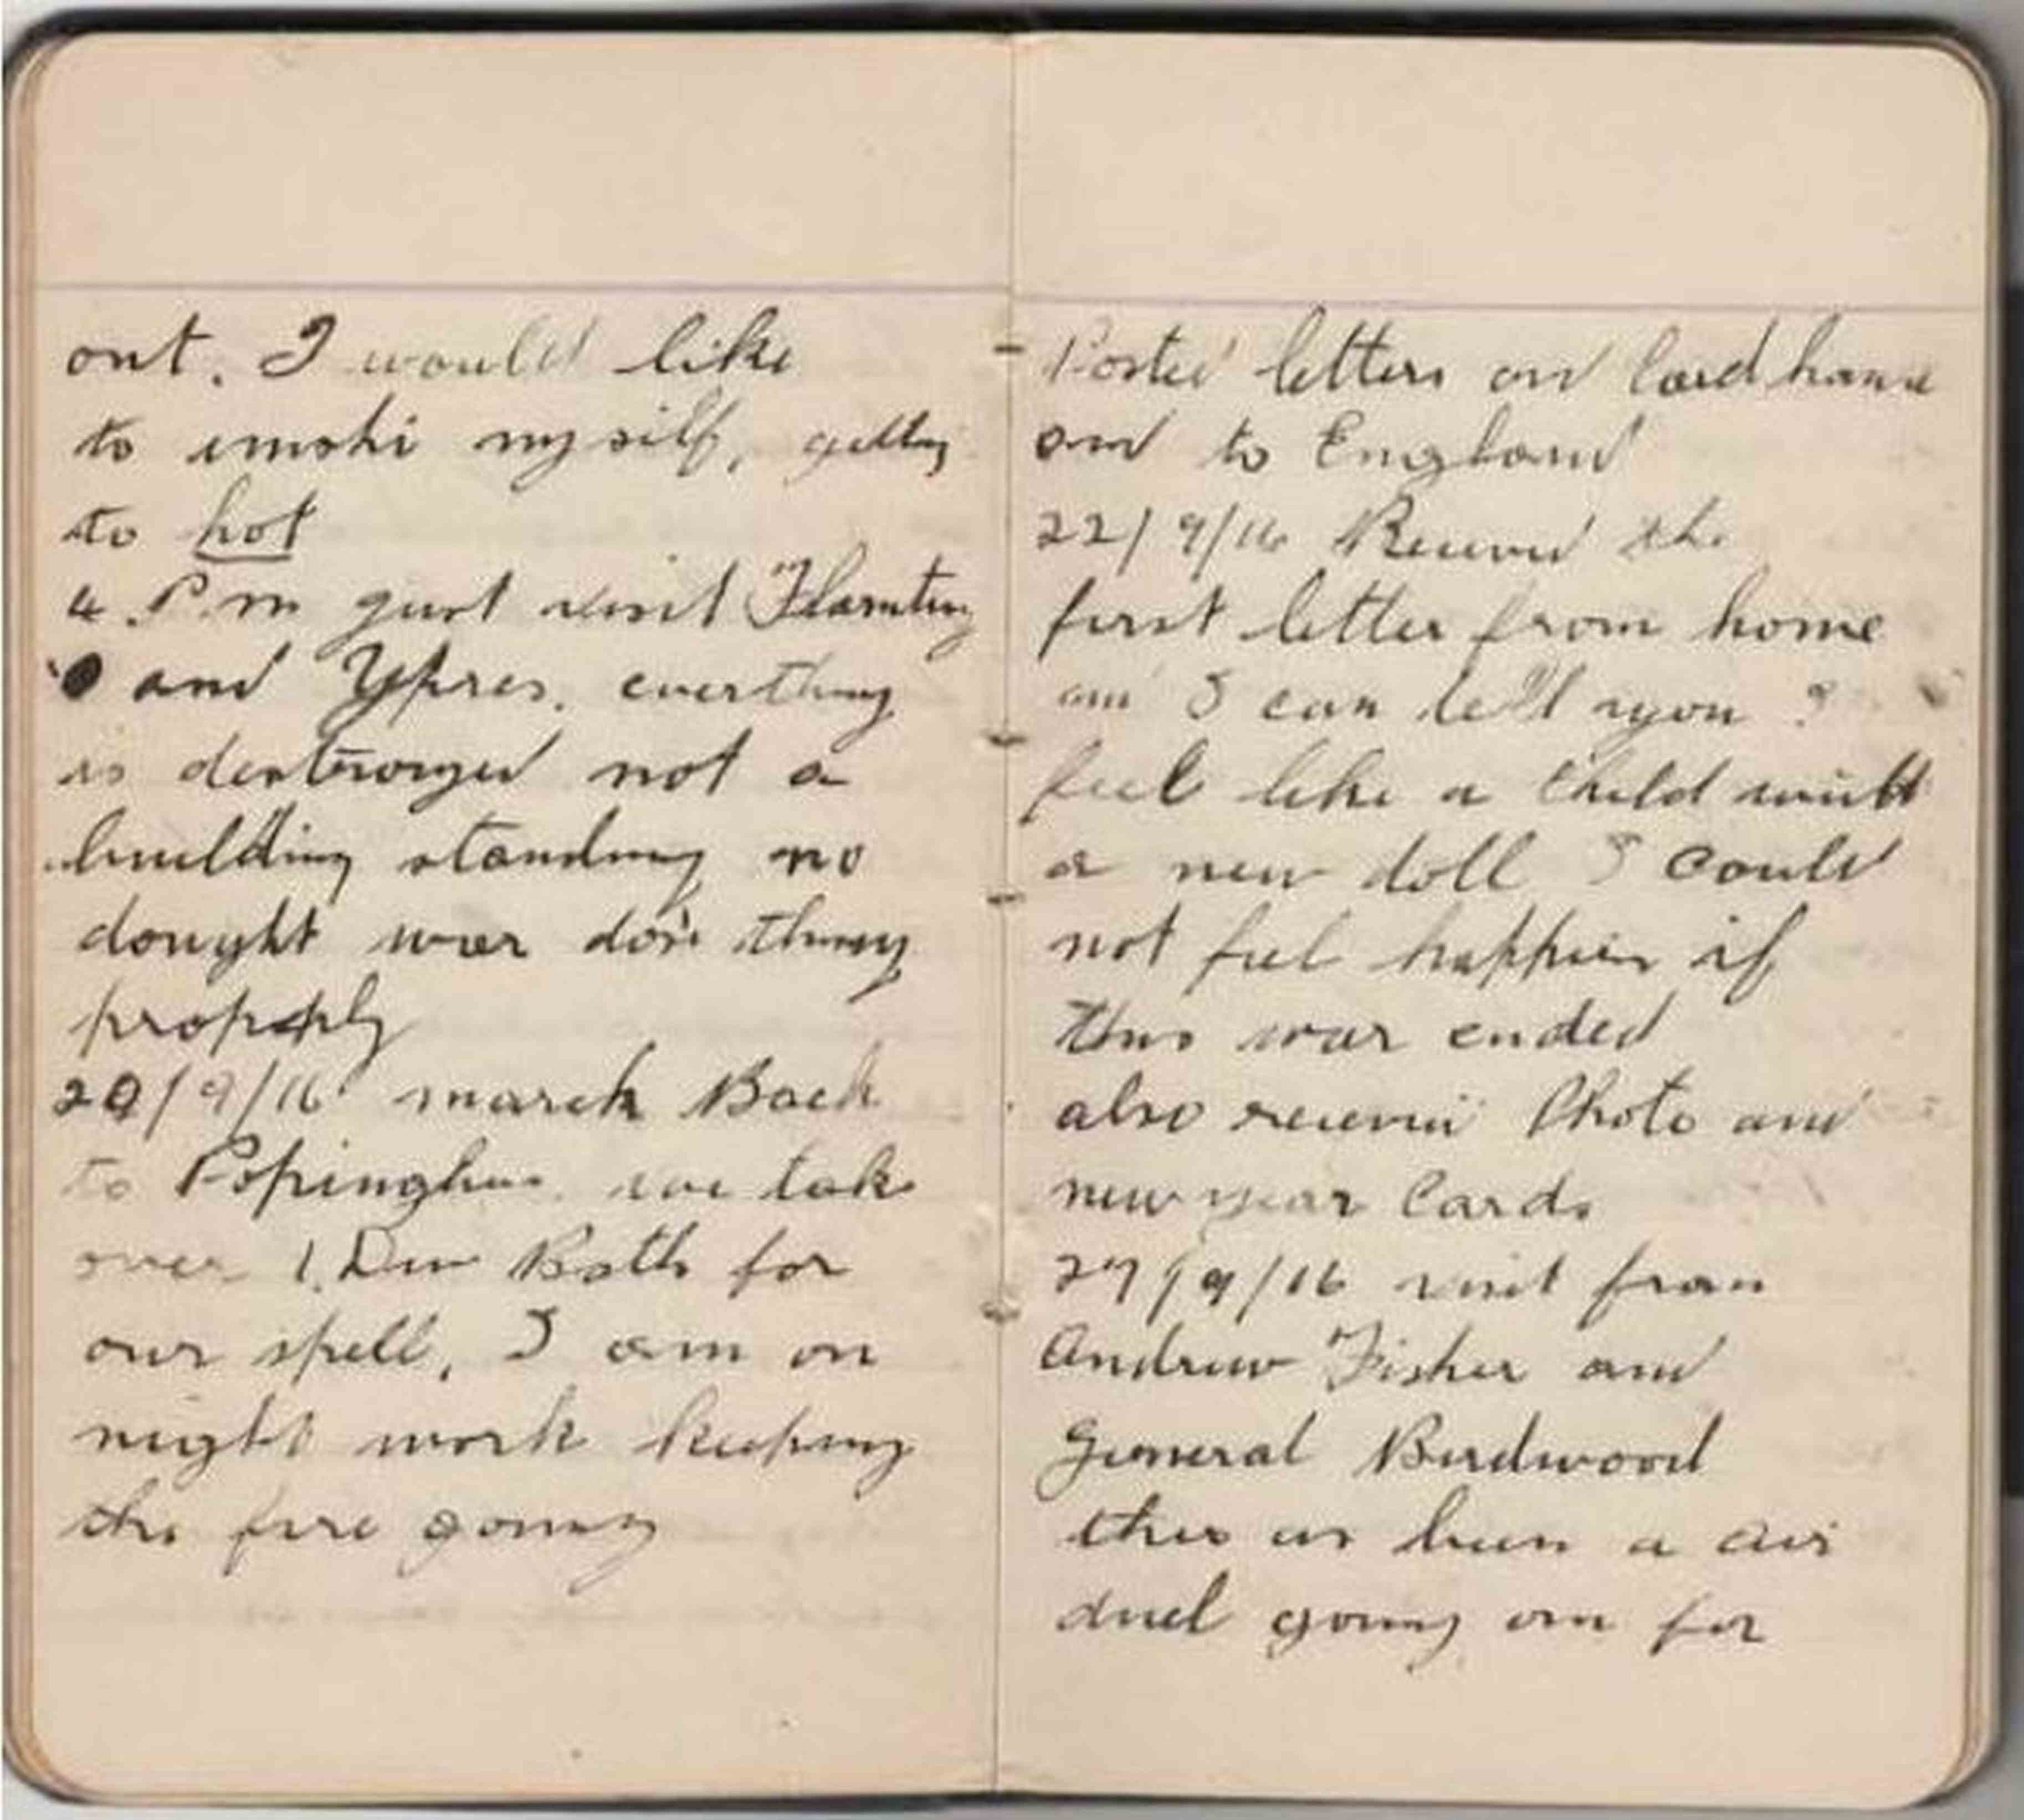 out. I would like
to smoke my self, getting
to hot
4 P.m just visit Flamting
and Ypres. everthing
is destroyed not a
building standing no
dought war don thing
properly
20/9/16 march Back
to Popinghue we take
over 1. Div Bath for
our spell, I am on
night work keeping
the fire going
Posted letters and Card home
and to England
22/9/16 Received the
first letter from home
and I can tell you I
feel like a child with
a new doll I could
not feel happier if
this war ended
also received Photo and
new year Cards
27/9/16 visit from
Andrew Fisher and
General Birdwood
ther as been a air
duel going on for